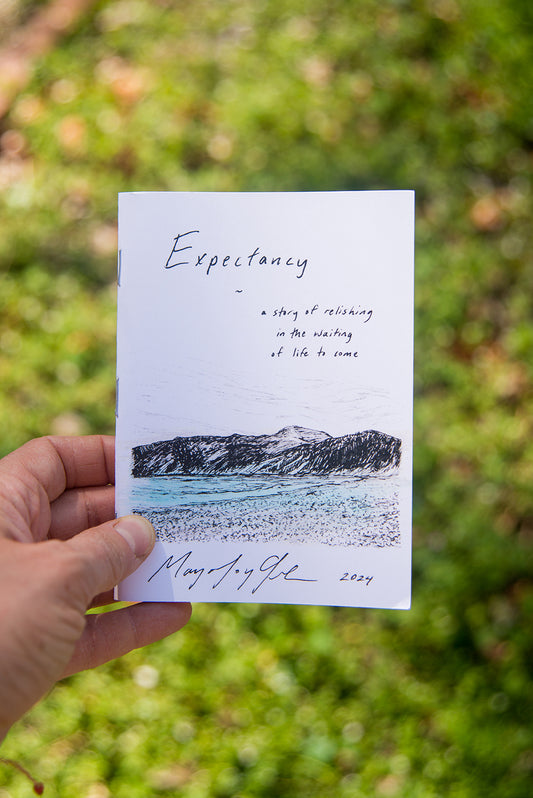 Expectancy
~
a story of relishing
in the waiting
of life to come
2024